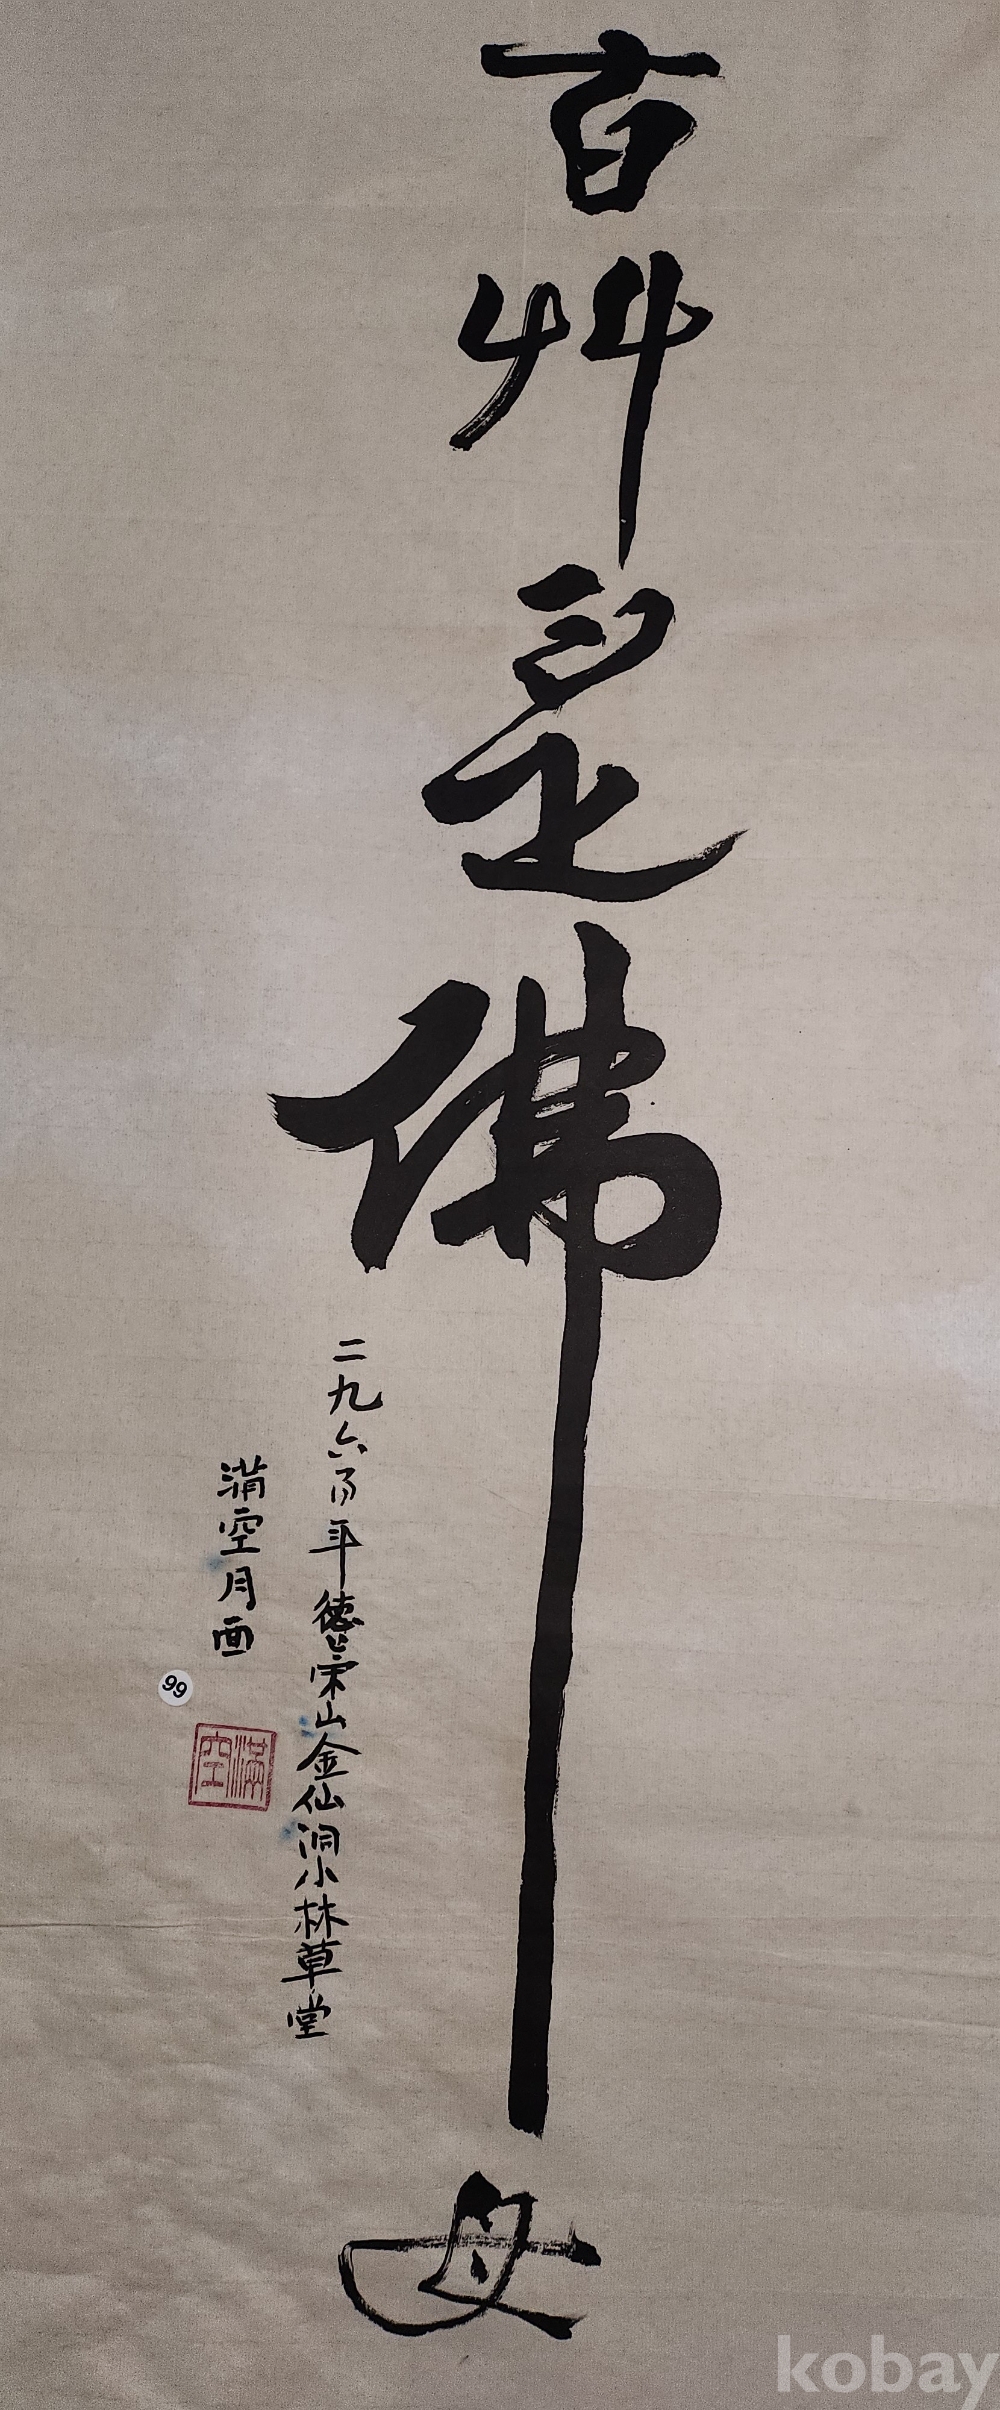 百艸是佛母
二九六年德崇山金仙洞小林草堂
満空月面
99
滿空
kobay